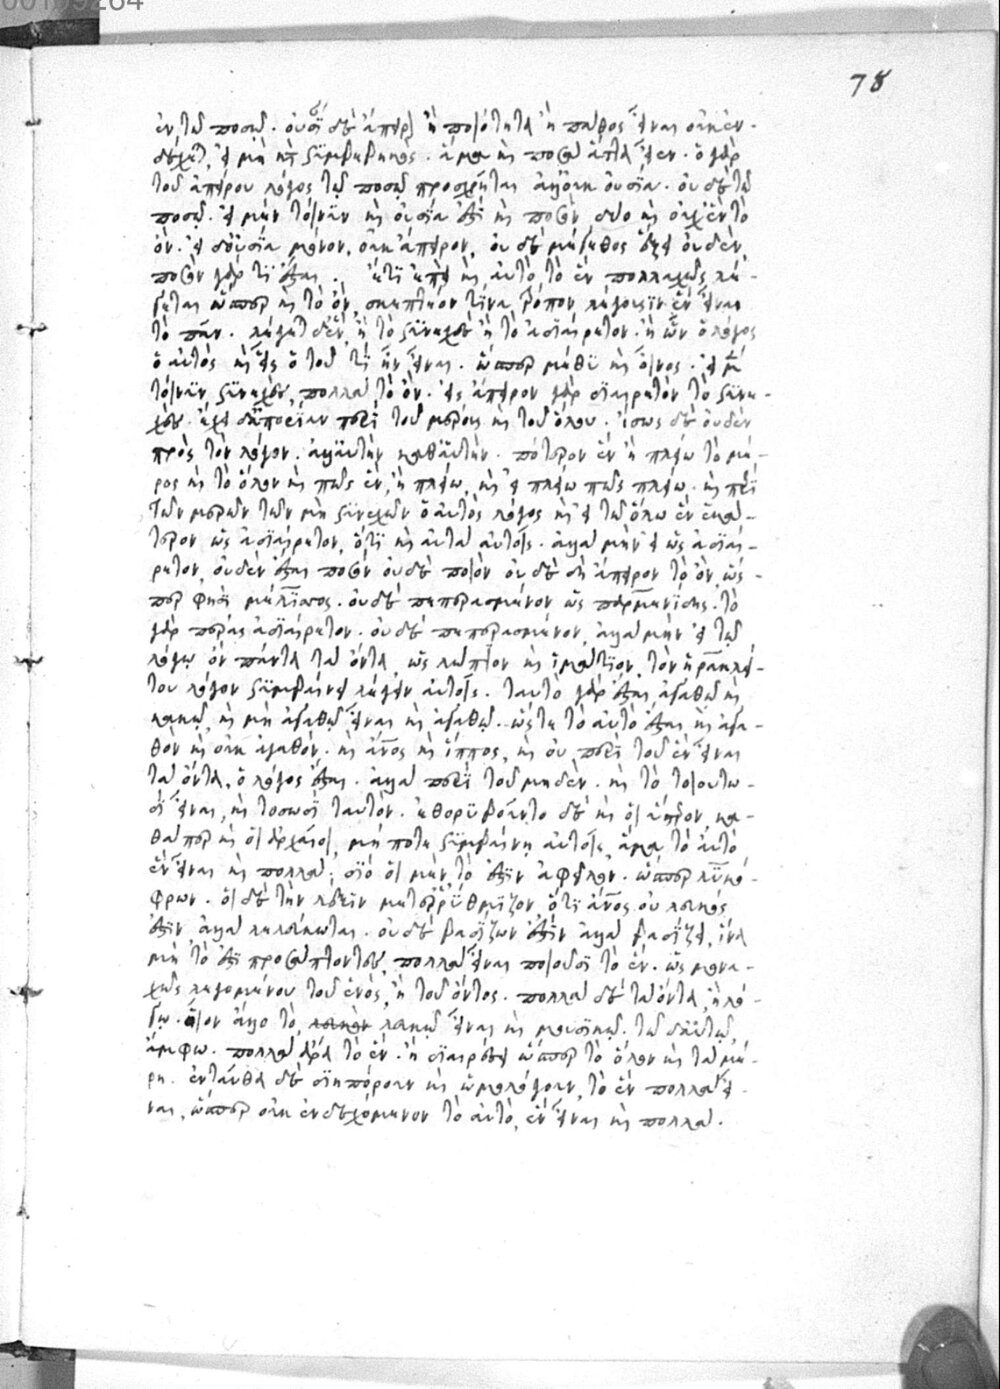 78
ἐν τῷ ποσῷ. οὐσί δὲ ἄπειρον ἢ ποιότητα ἢ πάθος εἶναι οὐκ ἐν-
δέχετ, εἰ μὴ κτ συμβεβηκός. ἅμα καὶ ποσὰ ἄττα εἶεν. ὁ γὰρ
τοῦ ἀπείρου λόγος τῷ ποσῷ προσχρῆται ἀλλ' οὐκ οὐσία. οὐδὲ τῷ
ποιῷ. εἰ μὲν τοίνυν καὶ οὐσία ἐστὶ καὶ ποσὸν δύο καὶ οὐχ ἓν τὸ
ὄν. εἰ δ' οὐσία μόνον, οὐκ ἄπειρον, οὐδὲ μέγεθος ἕξει οὐδέν
ποσὸν γάρ τι ἔσται. ἔτι ἐπεὶ καὶ αὐτὸ τὸ ἓν πολλαχῶς λέ-
γεται ὥσπερ καὶ τὸ ὄν, σκεπτέον τίνα τρόπον λέγουσιν ἓν εἶναι
τὸ πᾶν. λέγετ δ' ἓν ἢ τὸ συνεχὲς ἢ τὸ ἀδιαίρετον. ἢ ὧν ὁ λόγος
ὁ αὐτὸς καὶ εἷς ὁ τοῦ τί ἦν εἶναι. ὥσπερ μέθυ καὶ οἶνος. εἰ μ
τοίνυν συνεχές, πολλὰ τὸ ὄν. εἰς ἄπειρον γὰρ διαιρετὸν τὸ συνε-
χές. ἔχει δ' ἀπορίαν περὶ τοῦ μέρους καὶ τοῦ ὅλου. ἴσως δὲ οὐδὲν
πρὸς τὸν λόγον. ἀλλ' αὐτὴν καθ' αὑτὴν. πότερον ἓν ἢ πλείω τὸ μέ-
ρος καὶ τὸ ὅλον καὶ πῶς ἓν, ἢ πλείω, καὶ εἰ πλείω πῶς πλείω. καὶ περὶ
τῶν μερῶν τῶν μὴ συνεχῶν ὁ αὐτὸς λόγος καὶ εἰ τῷ ὅλῳ ἓν ἑκά-
τερον ὡς ἀδιαίρετον, ὅτι καὶ αὐτὰ αὑτοῖς. ἀλλὰ μὴν εἰ ὡς ἀδιαί-
ρετον, οὐδὲν ἔσται ποσὸν οὐδὲ ποιὸν οὐδὲ δὴ ἄπειρον τὸ ὄν, ὥς-
περ φησὶ μέλισσος. οὐδὲ πεπερασμένον ὡς παρμενίδης. τὸ
γὰρ πέρας ἀδιαίρετον. οὐδὲ πεπερασμένον, ἀλλὰ μὴν εἰ τῷ
λόγῳ ὂν πάντα τὰ ὄντα, ὡς λώπιον καὶ ἱμάτιον, τὸν ἡρακλεί-
του λόγον συμβαίνει λέγειν αὐτοῖς. ταυτὸ γὰρ ἔσται ἀγαθῷ καὶ
κακῷ, καὶ μὴ ἀγαθῷ εἶναι καὶ ἀγαθῷ. ὥστε τὸ αὐτὸ ἔσται καὶ ἀγα-
θὸν καὶ οὐκ ἀγαθὸν. καὶ ἄνος καὶ ἵππος, καὶ οὐ περὶ τοῦ ἓν εἶναι
τὰ ὄντα, ὁ λόγος ἔσται. ἀλλὰ περὶ τοῦ μηδέν. καὶ τὸ τοιουτω-
δὶ εἶναι, καὶ τοσωδὶ ταυτόν. ἐθορυβοῦντο δὲ καὶ οἱ ὕστερον, κα-
θάπερ καὶ οἱ ἀρχαῖοι, μή ποτε συμβαίνη αὐτοῖς, ἅμα τὸ αὐτὸ
ἓν εἶναι καὶ πολλά; διὸ οἱ μὲν τὸ ἐστὶν ἀφεῖλον. ὥσπερ λυκό-
φρων. οἱ δὲ τὴν λέξιν μετερρύθμιζον, ὅτι ἄνος οὐ λευκός
ἐστὶν ἀλλὰ λελεύκωται. οὐδὲ βαδίζων ἐστὶν ἀλλὰ βαδίζει, ἵνα
μὴ τὸ ἐστὶ προσάπτοντες, πολλὰ εἶναι ποιοῦσι τὸ ἕν. ὡς μονα-
χῶς λεγομένου τοῦ ἑνὸς, ἢ τοῦ ὄντος. πολλὰ δὲ τὰ ὄντα, ἢ λό-
γῳ. οἷον ἄλλο τὸ, λευκῷ εἶναι καὶ μουσικῷ. τῷ δ' αὐτῷ
ἄμφω. πολλὰ ἄρα τὸ ἕν. ἢ διαιρέσει ὥσπερ τὸ ὅλον καὶ τὰ μέ-
ρη. ἐνταῦθα δὲ διηπόρουν καὶ ὡμολόγουν, τὸ ἓν πολλὰ εἶ-
ναι, ὥσπερ οὐκ ἐνδεχόμενον τὸ αὐτὸ, ἓν εἶναι καὶ πολλά.